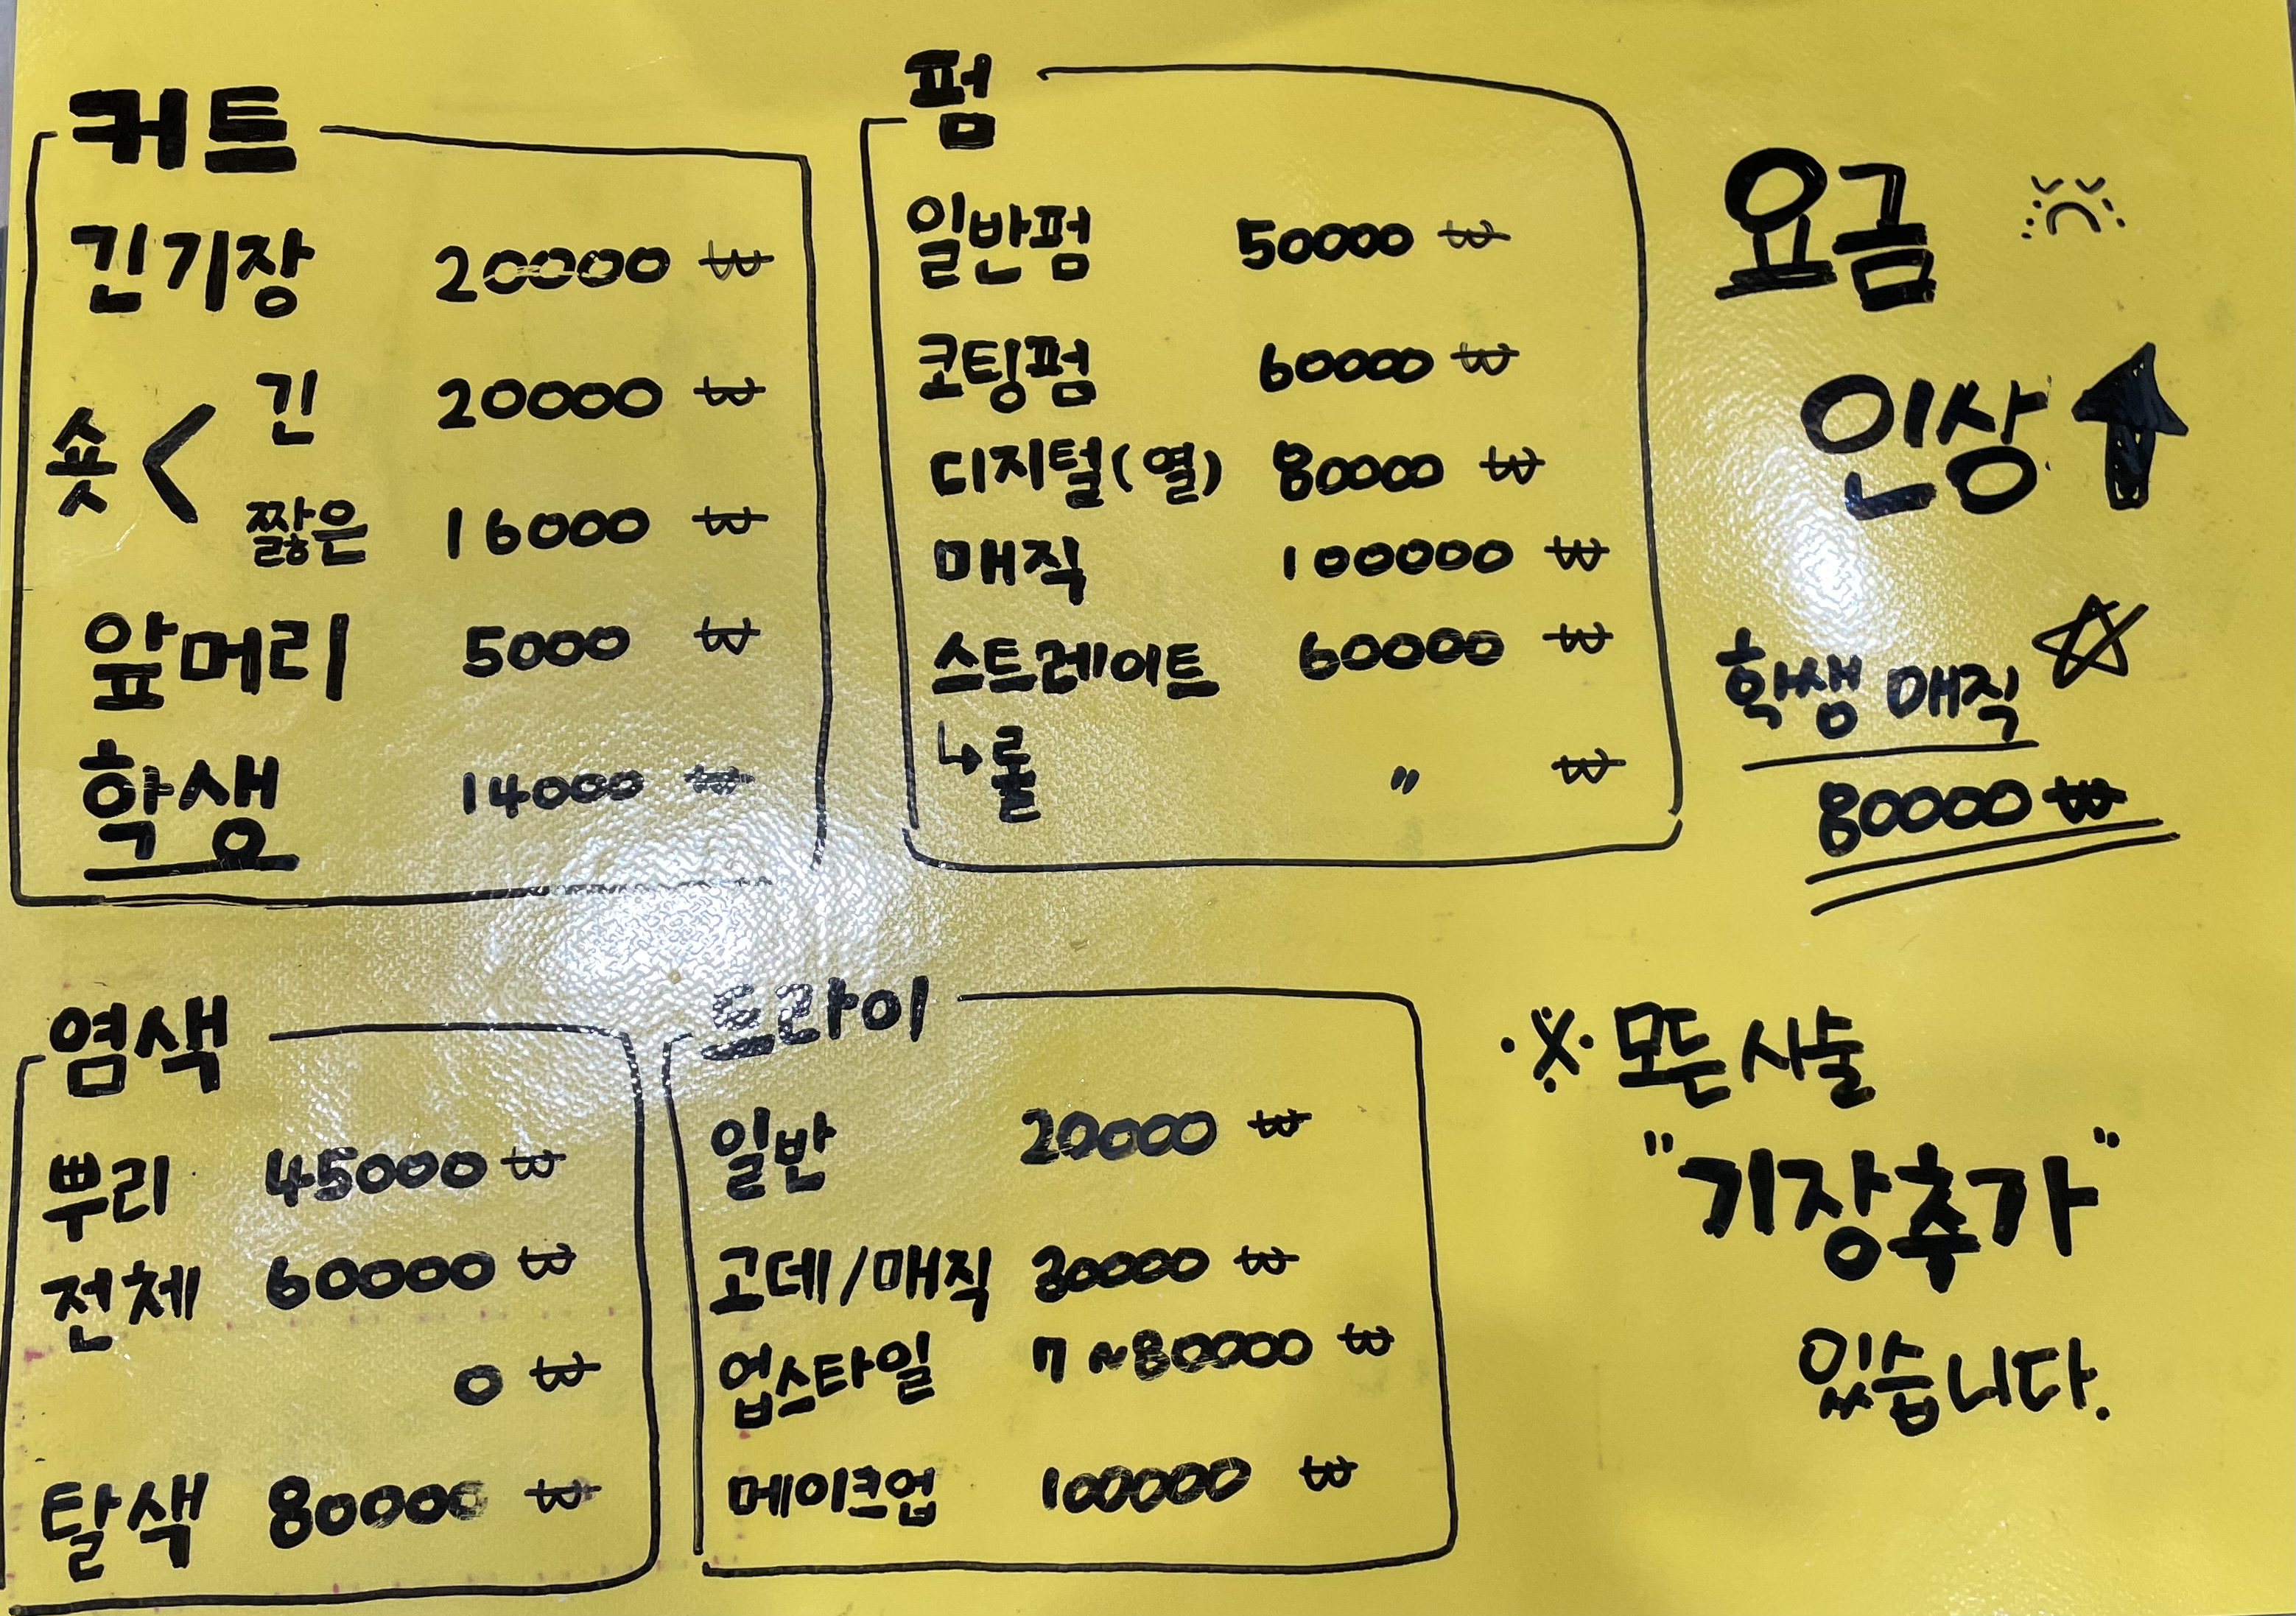 커트
긴기장 20000 ₩
숏 < 긴 20000 ₩
짧은 16000 ₩
앞머리 5000 ₩
학생 14000 ₩
펌
일반펌 50000 ₩
코팅펌 60000 ₩
디지털(열) 80000 ₩
매직 100000 ₩
스트레이트 60000 ₩
↳롤 〃 ₩
요금
인상 ↑
학생 매직 ☆
80000 ₩
염색
뿌리 45000 ₩
전체 60000 ₩
0 ₩
탈색 80000 ₩
드라이
일반 20000 ₩
고데/매직 30000 ₩
업스타일 7~80000 ₩
메이크업 100000 ₩
※ 모든 시술
"기장추가"
있습니다.